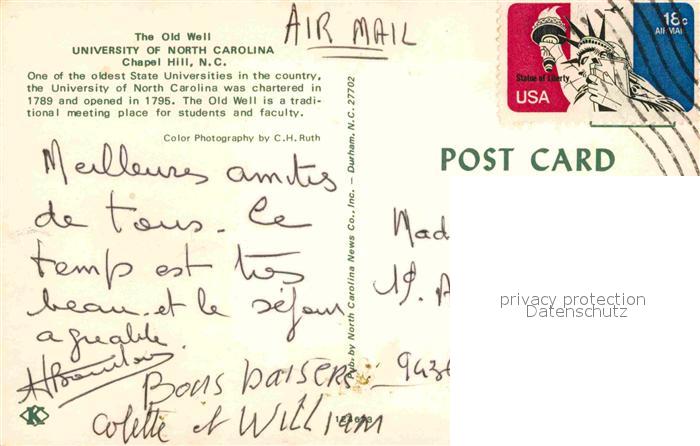 The Old Well
UNIVERSITY OF NORTH CAROLINA
Chapel Hill, N.C.
One of the oldest State Universities in the country,
the University of North Carolina was chartered in
1789 and opened in 1795. The Old Well is a tradi-
tional meeting place for students and faculty.
Color Photography by C.H. Ruth
AIR MAIL
18c
AIR MAIL
Statue of Liberty
USA
POST CARD
Meilleures amitiés
de tous. Le
temps est très
beau et le séjour
agréable.
Bons baisers
Colette et William
Pub. by North Carolina News Co., Inc. — Durham, N.C. 27702
Mad
19. A
privacy protection
Datenschutz
K